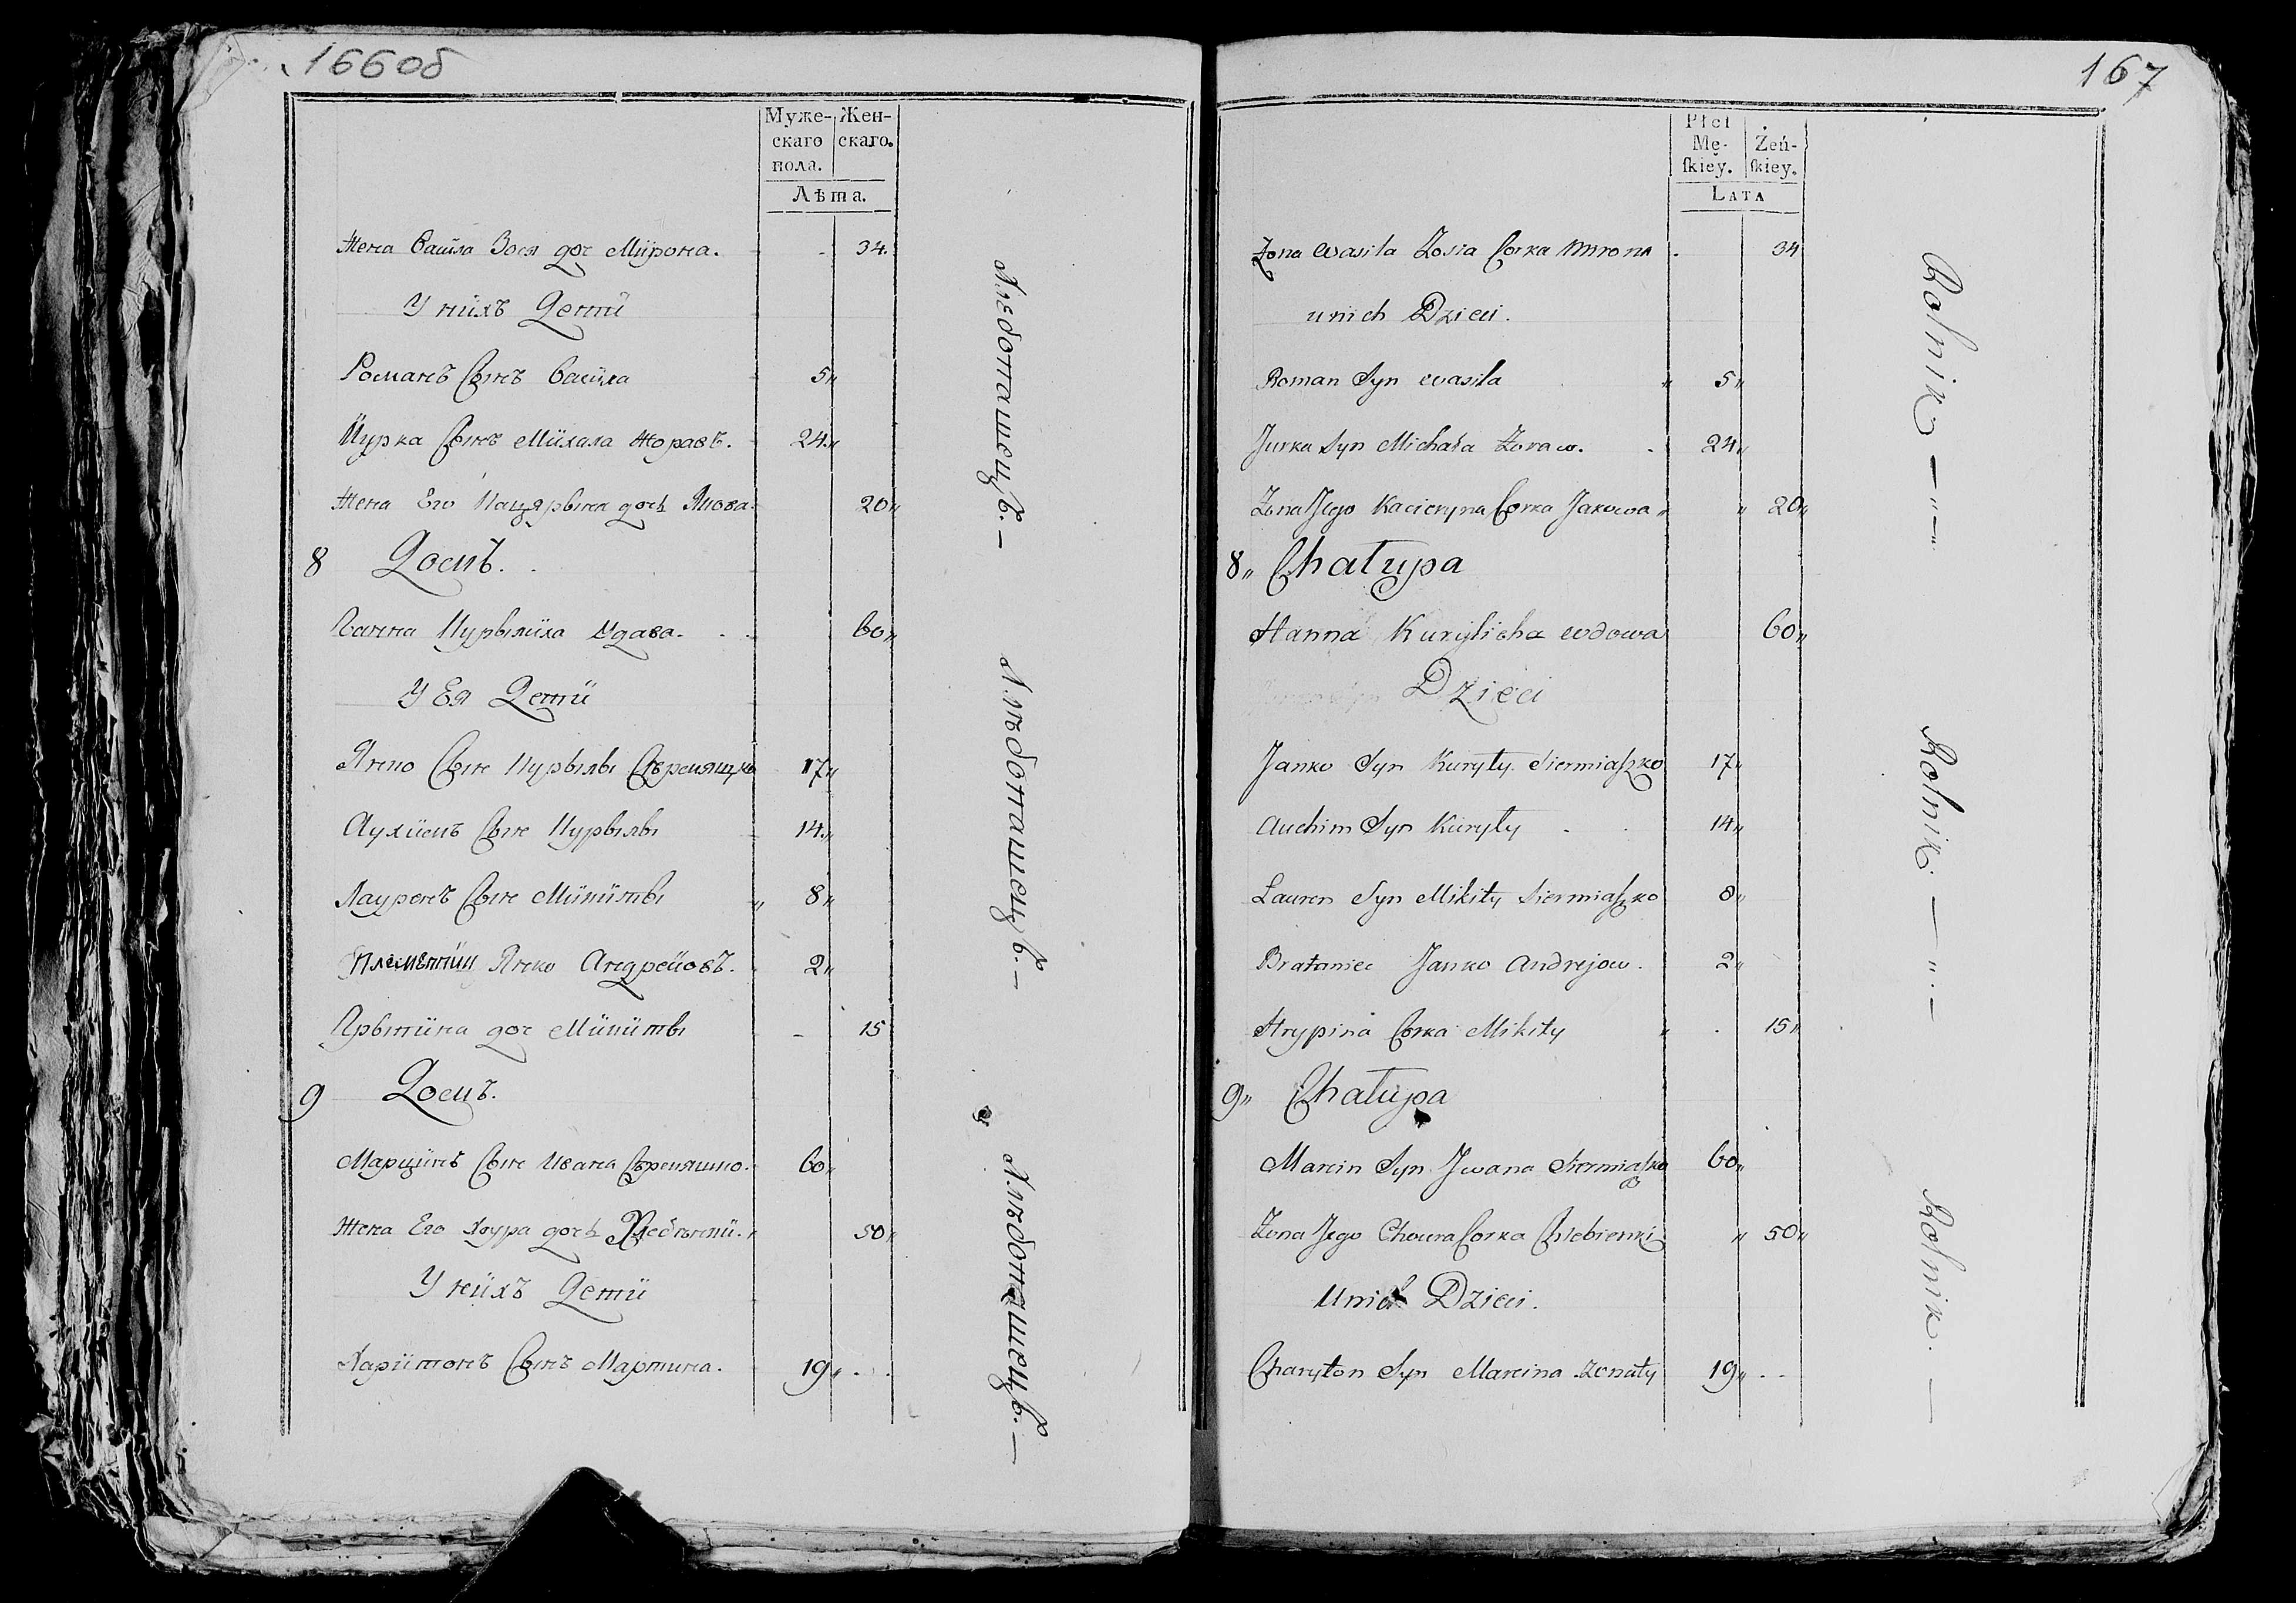 166об
Муже- Жен-
скаго скаго.
пола.
Лѣта.
Жена Васила Зося доч Мирона. - 34.
У нихъ Дети
Романъ Сынъ Васила 5„
Юрка Сынъ Михала Жоравъ. 24„
Жена Его Кацярына дочь Якова 20„
8 Домъ.
Ганна Курылиха Удава. 60„
У Ея Дети
Янко Сынъ Курылы Сѣремяшко 17„
Аухимъ Сынъ Курылы 14„
Лауренъ Сынъ Микиты „ 8„
Племѣнник Янко Андреёвъ. 2„
Грыпина доч Микиты - 15
9 Домъ.
Марцинъ Сынъ Ивана Сѣремяшко. 60„
Жена Его Хоура дочь 50„
У нихъ Дети
Харитонъ Сынъ Мартина. 19„
Хлебопашецъ. —
Хлѣбопашецъ. —
Хлѣбопашецъ. —
167
Płci
Mę- Żeń-
ſkiéy. ſkiey.
LATA
Żona Wasila Zosia Corka Mirona . 34
u nich Dzieci.
Roman Syn Wasila „ 5„
Jurka Syn Michała Żoraw. 24„
Żona Jego Kacieryna Corka Jakowa „ „ 20„
8„ Chałupa
Hanna Kurylicha Wdowa 60„
Dzieci
Janko Syn Kuryły Siermiaszko 17„
Auchim Syn Kuryły 14„
Lauren Syn Mikity Siermiaszko 8„
Brataniec Janko Andrejow. 2„
Hrypina Corka Mikity „ . 15„
9„ Chałupa
Marcin Syn Jwana Siermiaszko 60„
Żona Jego Choura Corka „ 50„
U nich Dzieci.
Charyton Syn Marcina żonaty 19„
Rolnik — „ —
Rolnik. — „ —
Rolnik. —